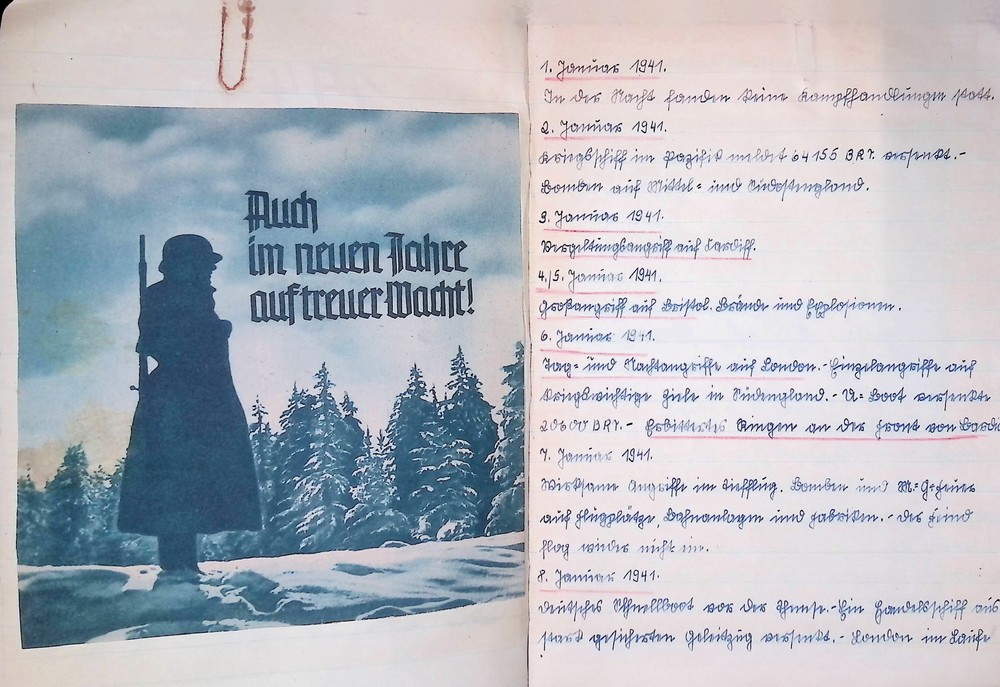 Auch
im neuen Jahre
auf treuer Wacht!
1. Januar 1941.
In der Nacht fanden keine Kampfhandlungen statt.
2. Januar 1941.
Kriegsschiff im Pazifik meldet 64155 BRT. versenkt.-
Bomben auf Mittel- und Südostengland.
3. Januar 1941.
Vergeltungsangriff auf Cardiff.
4./5. Januar 1941.
Großangriff auf Bristol. Brände und Explosionen.
6. Januar 1941.
Tag- und Nachtangriffe auf London.- Einzelangriffe auf
kriegswichtige Ziele in Südengland.- U-Boot versenkte
20600 BRT.- Erbittertes Ringen an der Front von Bardia
7. Januar 1941.
Wirksame Angriffe im Tiefflug. Bomben und M-G-Feuer
auf Flugplätze, Bahnanlagen und Fabriken.- Der Feind
flog wieder nicht ein.
8. Januar 1941.
Deutsches Schnellboot vor der Themse.- Ein Handelsschiff aus
stark gesicherten Geleitzug versenkt.- London im Laufe